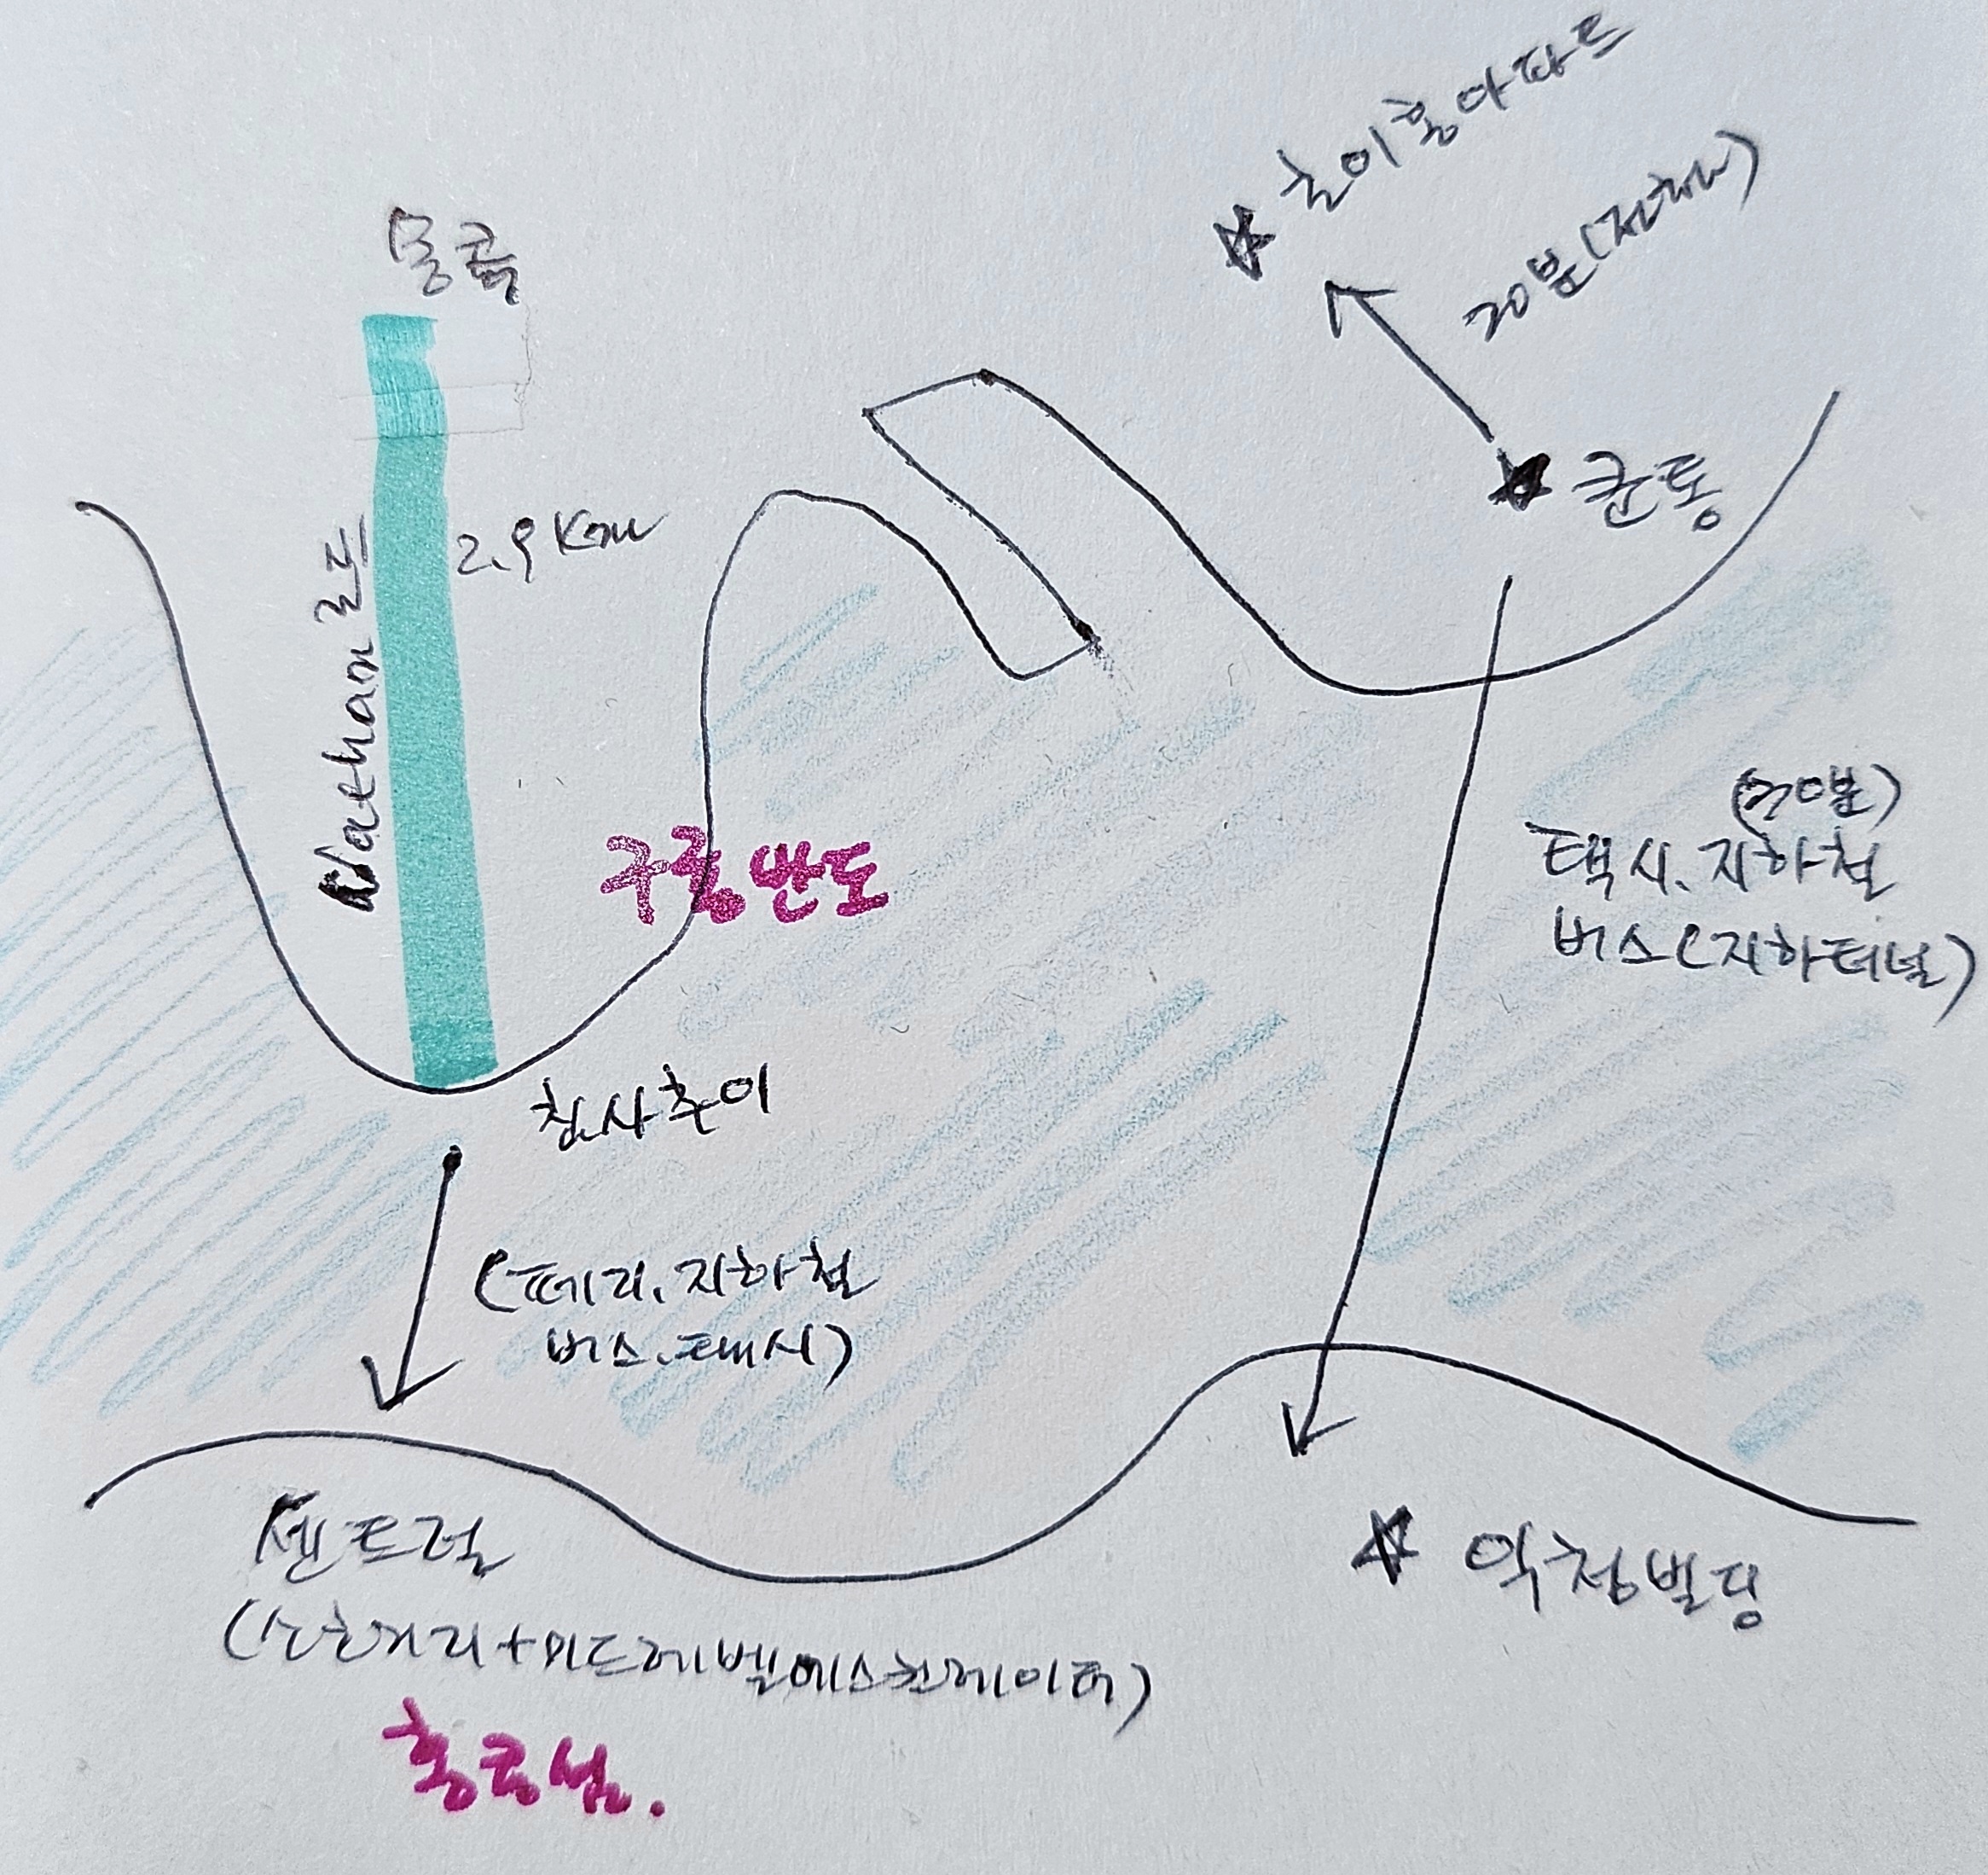 몽콕
Nathan 로드
2.9 Km
초이홍아파트
20분(전철)
쿤통
구룡반도
침사추이
(페리.지하철
버스.택시)
(30분)
택시.지하철
버스(지하터널)
센트럴
(소호거리+미드레벨에스컬레이터)
홍콩섬.
익청빌딩